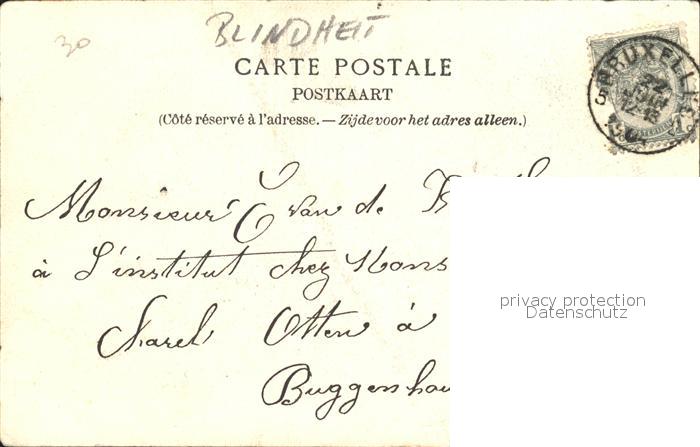 30
BLINDHEIT
CARTE POSTALE
POSTKAART
(Côté réservé à l'adresse. — Zijde voor het adres alleen.)
BRUXELLES
22
JUIN
Monsieur E van de
à L'institut chez Mons
Karel Otten à
Buggenhou
privacy protection
Datenschutz